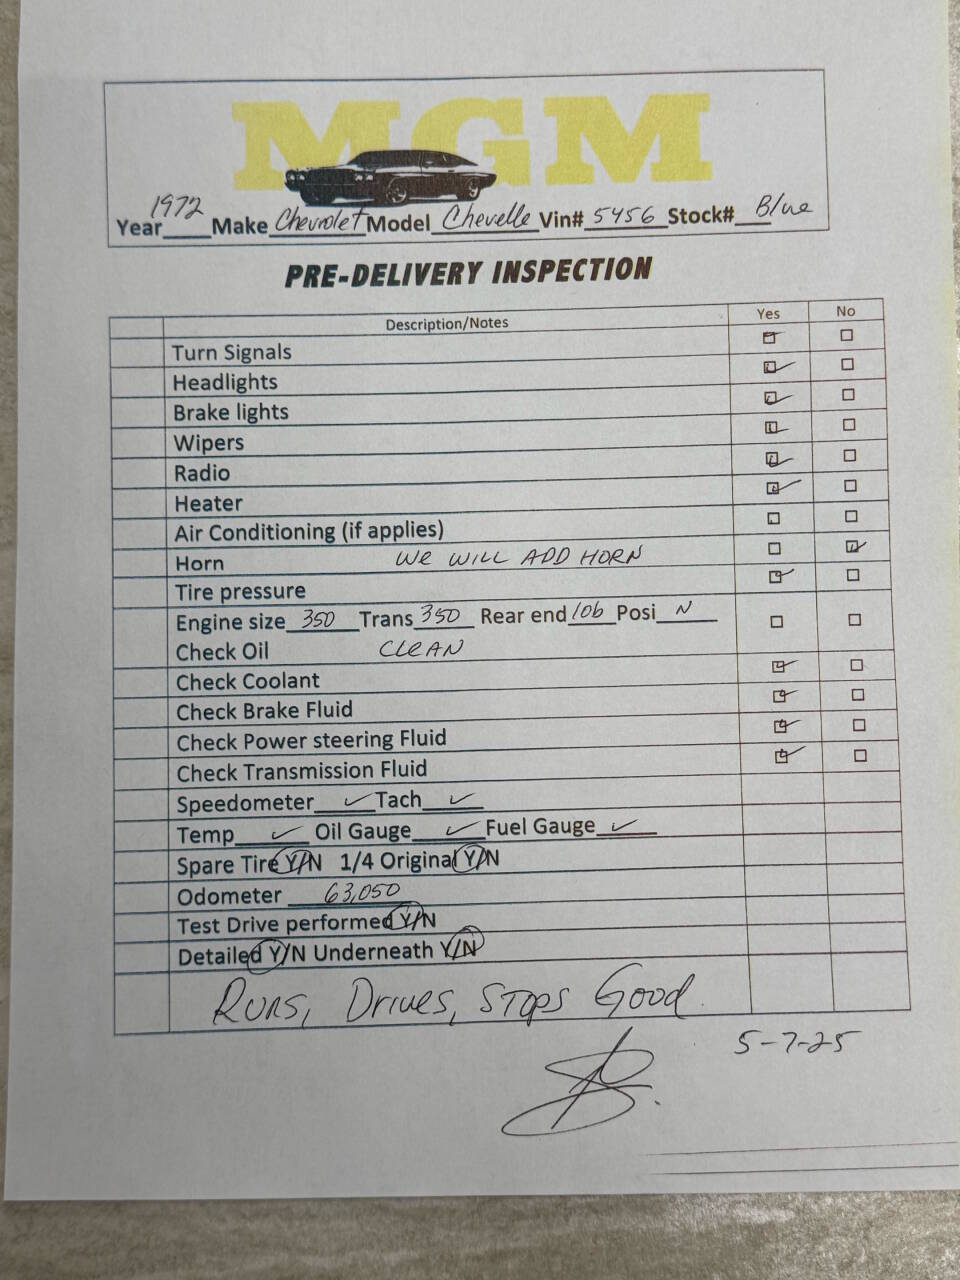 MGM
Year 1972 Make Chevrolet Model Chevelle Vin# 5456 Stock# Blue
PRE-DELIVERY INSPECTION
Description/Notes Yes No
Turn Signals
Headlights
Brake lights
Wipers
Radio
Heater
Air Conditioning (if applies)
Horn WE WILL ADD HORN
Tire pressure
Engine size 350 Trans 350 Rear end 10b Posi N
Check Oil CLEAN
Check Coolant
Check Brake Fluid
Check Power steering Fluid
Check Transmission Fluid
Speedometer ✓ Tach ✓
Temp ✓ Oil Gauge ✓ Fuel Gauge ✓
Spare Tire Y/N 1/4 Original Y/N
Odometer 63,050
Test Drive performed Y/N
Detailed Y/N Underneath Y/N
Runs, Drives, Stops Good.
5-7-25